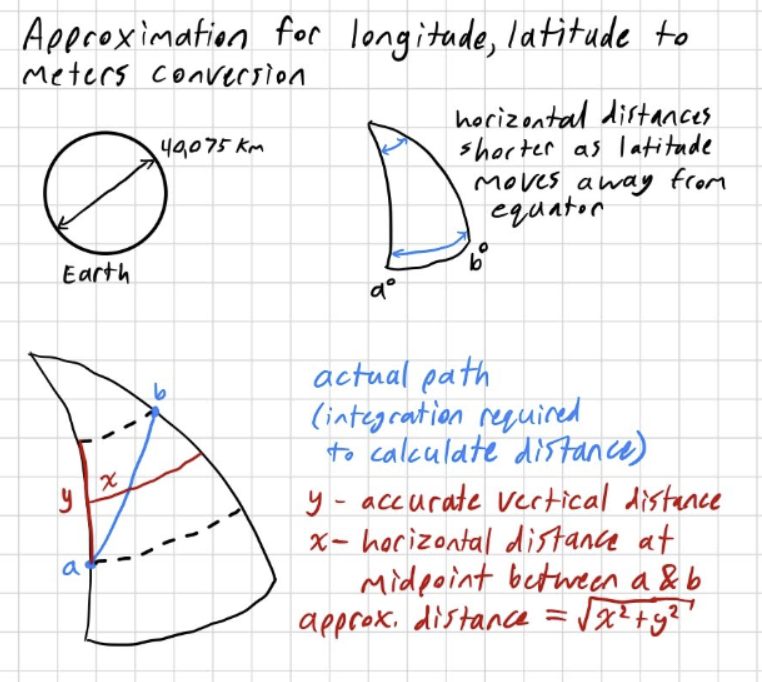 Approximation for longitude, latitude to
meters conversion
40,075 km
Earth
horizontal distances
shorter as latitude
moves away from
equator
a°
b°
b
y
x
a
actual path
(integration required
to calculate distance)
y - accurate vertical distance
x - horizontal distance at
midpoint between a & b
approx. distance = √x²+y²